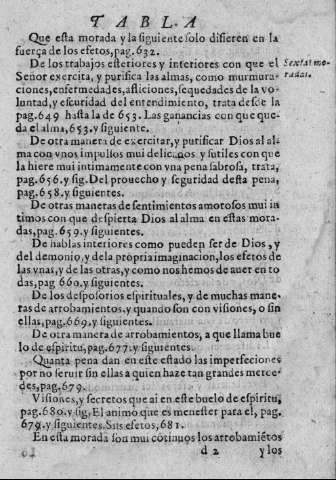 TABLA
Que esta morada y la siguiente solo difieren en la
fuerça de los efetos, pag. 632.
De los trabajos esteriores y interiores con que el
Sextas mo-
radas.
Señor exercita, y purifica las almas, como murmura-
ciones, enfermedades, afliciones, sequedades de la vo-
luntad, y escuridad del entendimiento, trata desde la
pag. 649 hasta la de 653. Las ganancias con que que-
da el alma, 653. y siguiente.
De otra manera de exercitar, y purificar Dios al al-
ma con vnos impulsos mui delicados y sutiles con que
la hiere mui intimamente con vna pena sabrosa, trata,
pag. 656. y sig. Del prouecho y seguridad desta pena,
pag. 658. y siguientes.
De otras maneras de sentimientos amorosos mui in
timos con que despierta Dios al alma en estas mora-
das, pag. 659. y siguientes.
De hablas interiores como pueden ser de Dios, y
del demonio, y de la propria imaginacion, los efetos de
las vnas, y de las otras, y como nos hemos de auer en to
das, pag 660. y siguientes.
De los desposorios espirituales, y de muchas mane-
ras de arrobamientos, y quando son con visiones, o sin
ellas, pag. 669. y siguientes.
De otra manera de arrobamientos, a que llama bue
lo de espiritu, pag. 677. y siguientes.
Quanta pena dan en este estado las imperfeciones
por no seruir sin ellas a quien haze tan grandes merce-
des, pag. 679.
Visiones, y secretos que ai en este buelo de espiritu,
pag. 680. y sig. El animo que es menester para el, pag.
679. y siguientes. Sus efetos, 681.
En esta morada son mui cõtinuos los arrobamiẽtos
d 2 y los